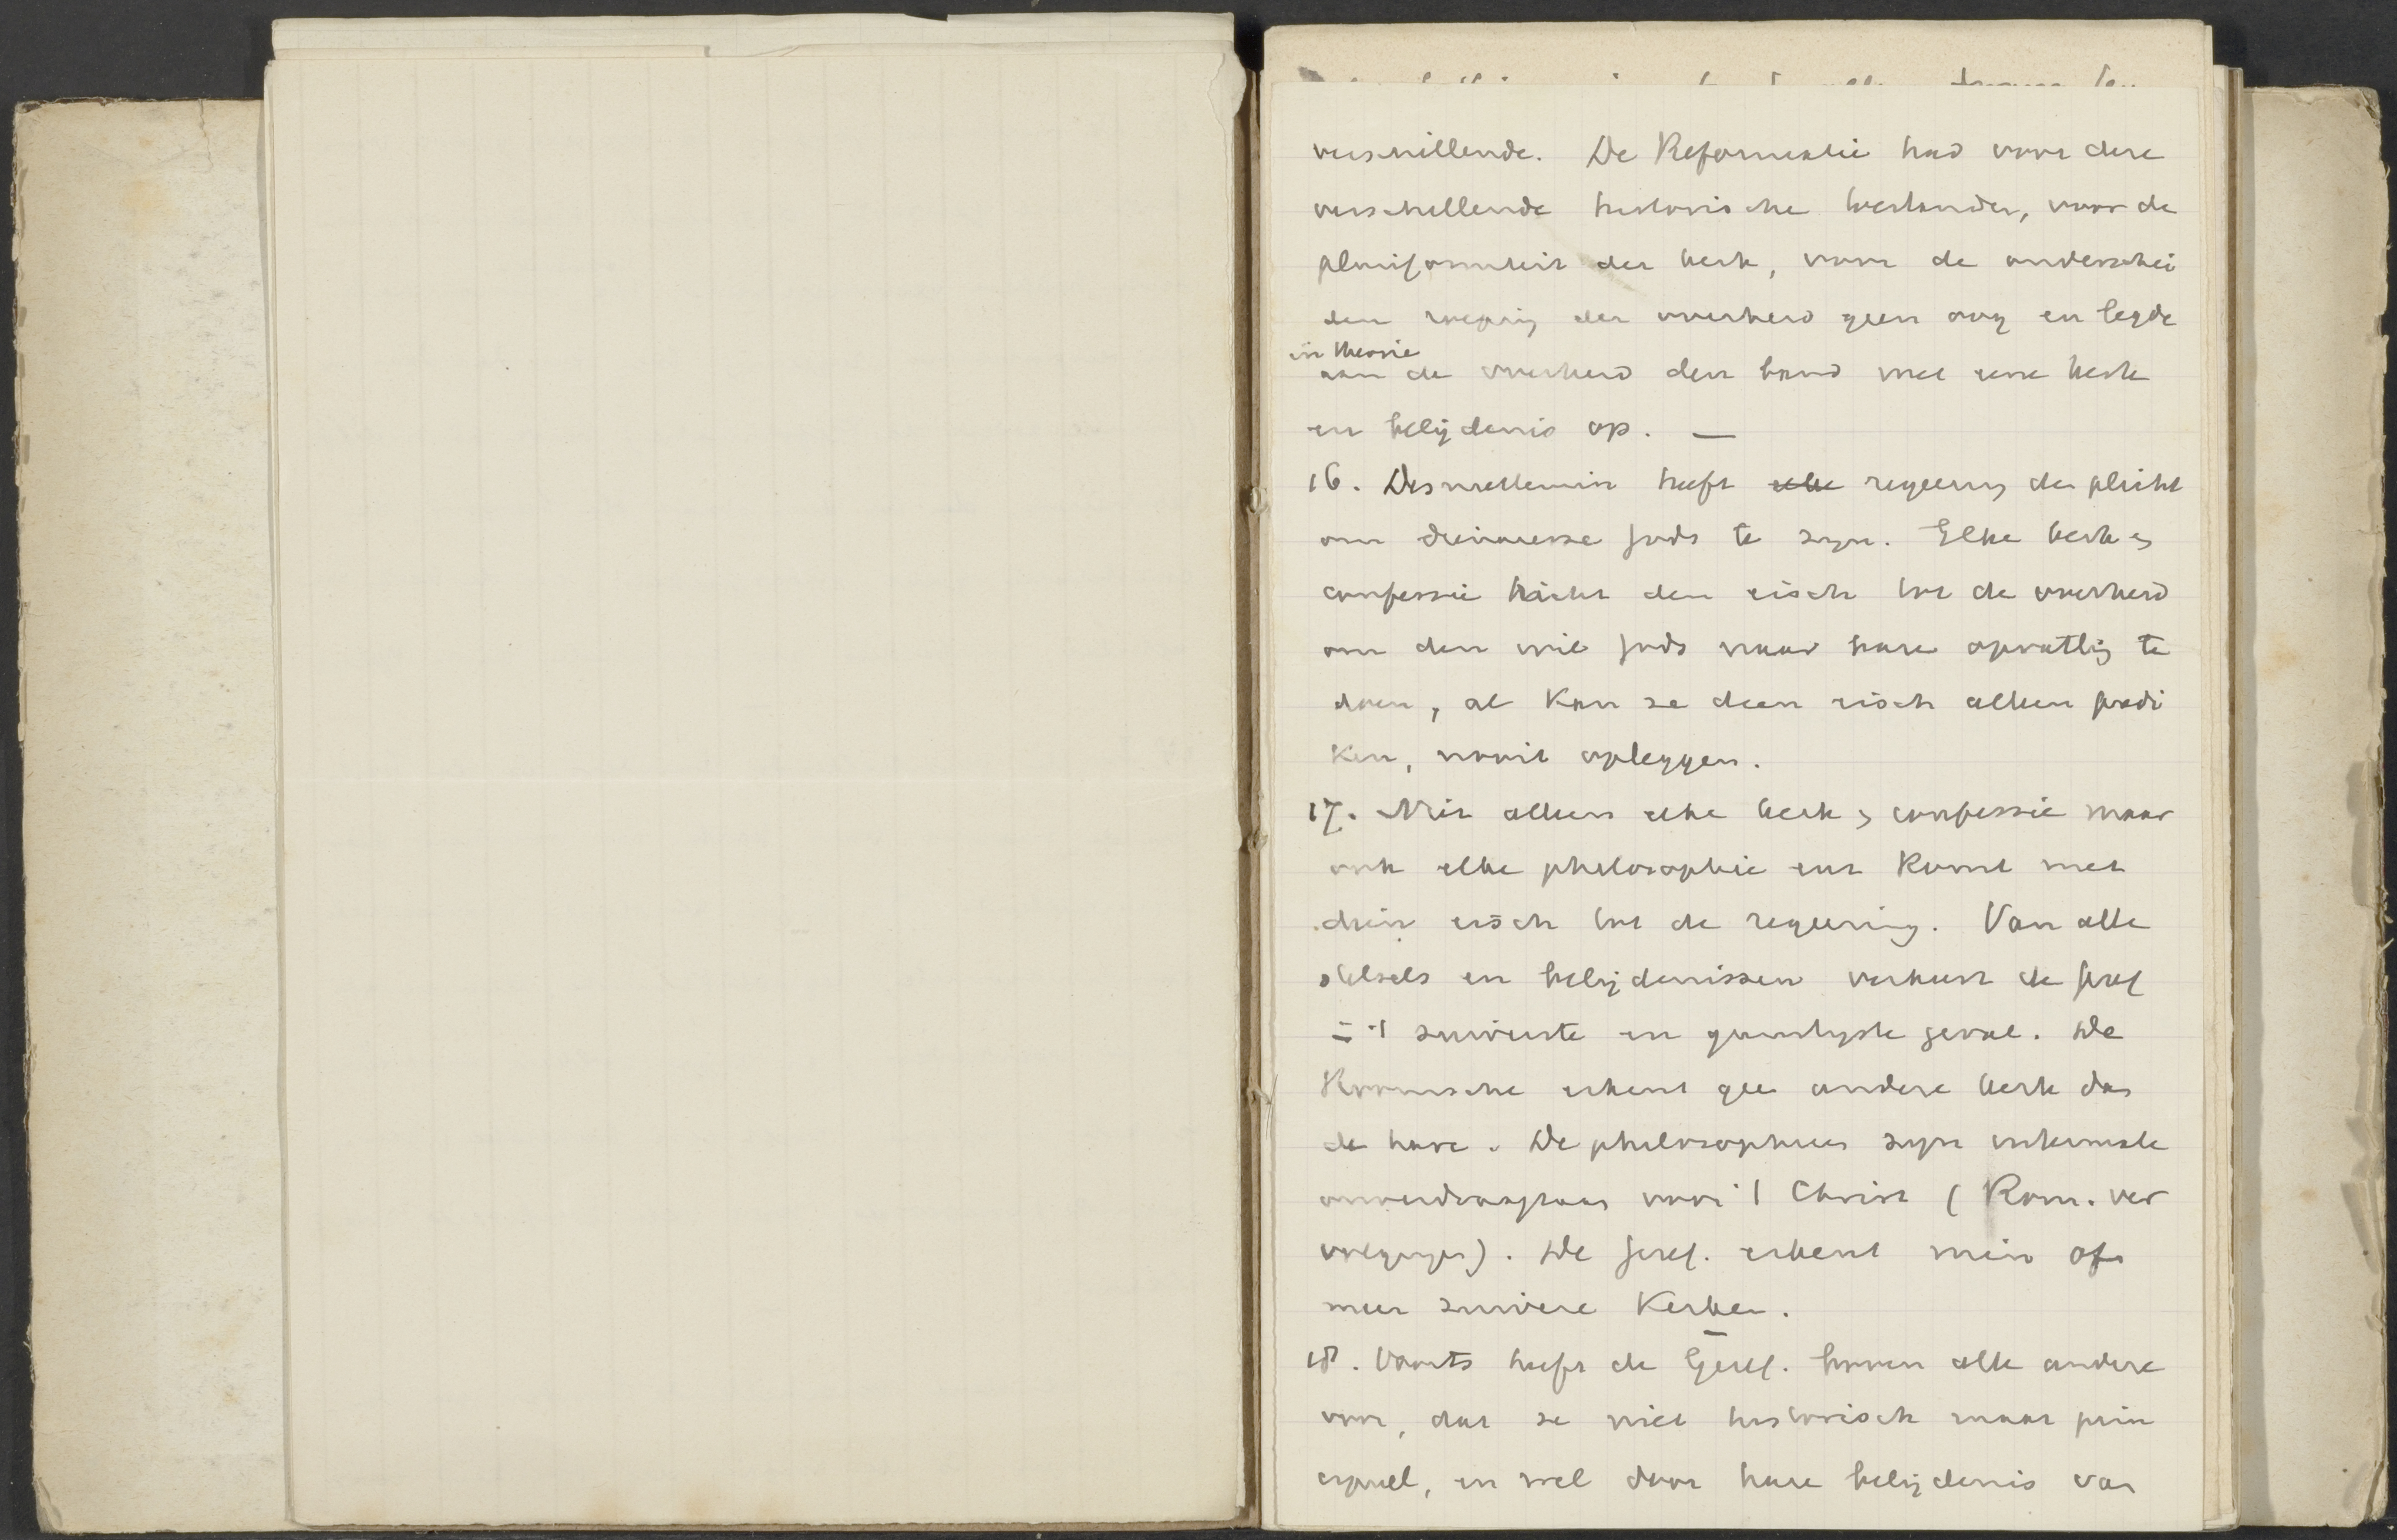 verschillende. De Reformatie had voor deze
verschillende historische toestanden, voor de
pluriformiteit der kerk, voor de onderschei
den roeping der overheid geen oog en legde
in theorie
aan de overheid den band met eene kerk
en belijdenis op. —
16. Desniettemin heeft elke regeering de plicht
om dienaresse Gods te zijn. Elke kerk en
confessie richt den eisch tot de overheid
om den wil Gods naar hare opvatting te
doen, al kan ze dien eisch alleen predi
ken, nooit opleggen.
17. Niet alleen elke kerk en confessie maar
ook elke philosophie enz komt met
dien eisch tot de regeering. Van alle
stelsels en belijdenissen verkeert de Geref
in 't zuiverste en gunstigste geval. De
Roomsche erkent gee andere kerk dan
de hare. De philosophieen zijn
onverdraagzaam voor 't Christ (Rom. ver
volgingen). De Geref. erkent min of
meer zuivere Kerken.
18. Voorts heeft de Geref. boven alle andere
voor, dat ze niet historisch maar prin
cipieel, en wel door hare belijdenis van